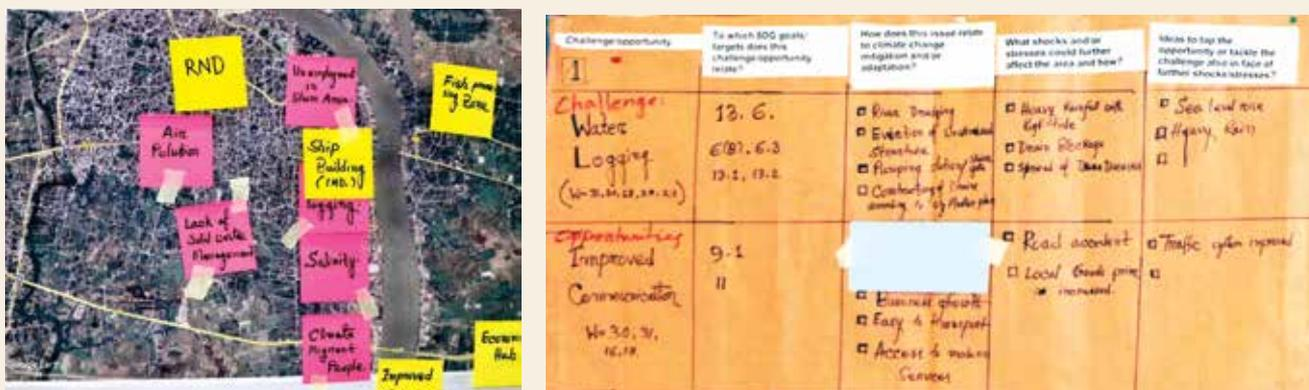 RND
Air
Polution
Unemployment
in
Slum Area
Fish
ing Zone
Ship
Building
(IND.)
logging
Lack of
Solid Waste
Management
Salinity
Climate
Migrant
People
Improved
Economic
Hub
Challenge/opportunity
1
To which SDG goals/
targets does this
challenge/opportunity
relate?
How does this issue relate
to climate change
mitigation and/or
adaptation?
What shocks and/or
stresses could further
affect the area and how?
Ideas to tap the
opportunity or tackle the
challenge also in face of
further shocks/stresses?
Challenge:
Water
Logging
13. 6.
6.3
13.1, 13.2
River
Eviction of
Structure
Pumping
Construction of
according to Master plan
Heavy Rainfall with
Drain Blockage
Spread of Diseases
Sea level rise
Heavy Rain
Opportunities
Improved
Communication
W= 30, 31,
9.1
11
Business growth
Easy to transport
Access to
Services
Road accident
Local Goods price
increased.
Traffic system improved